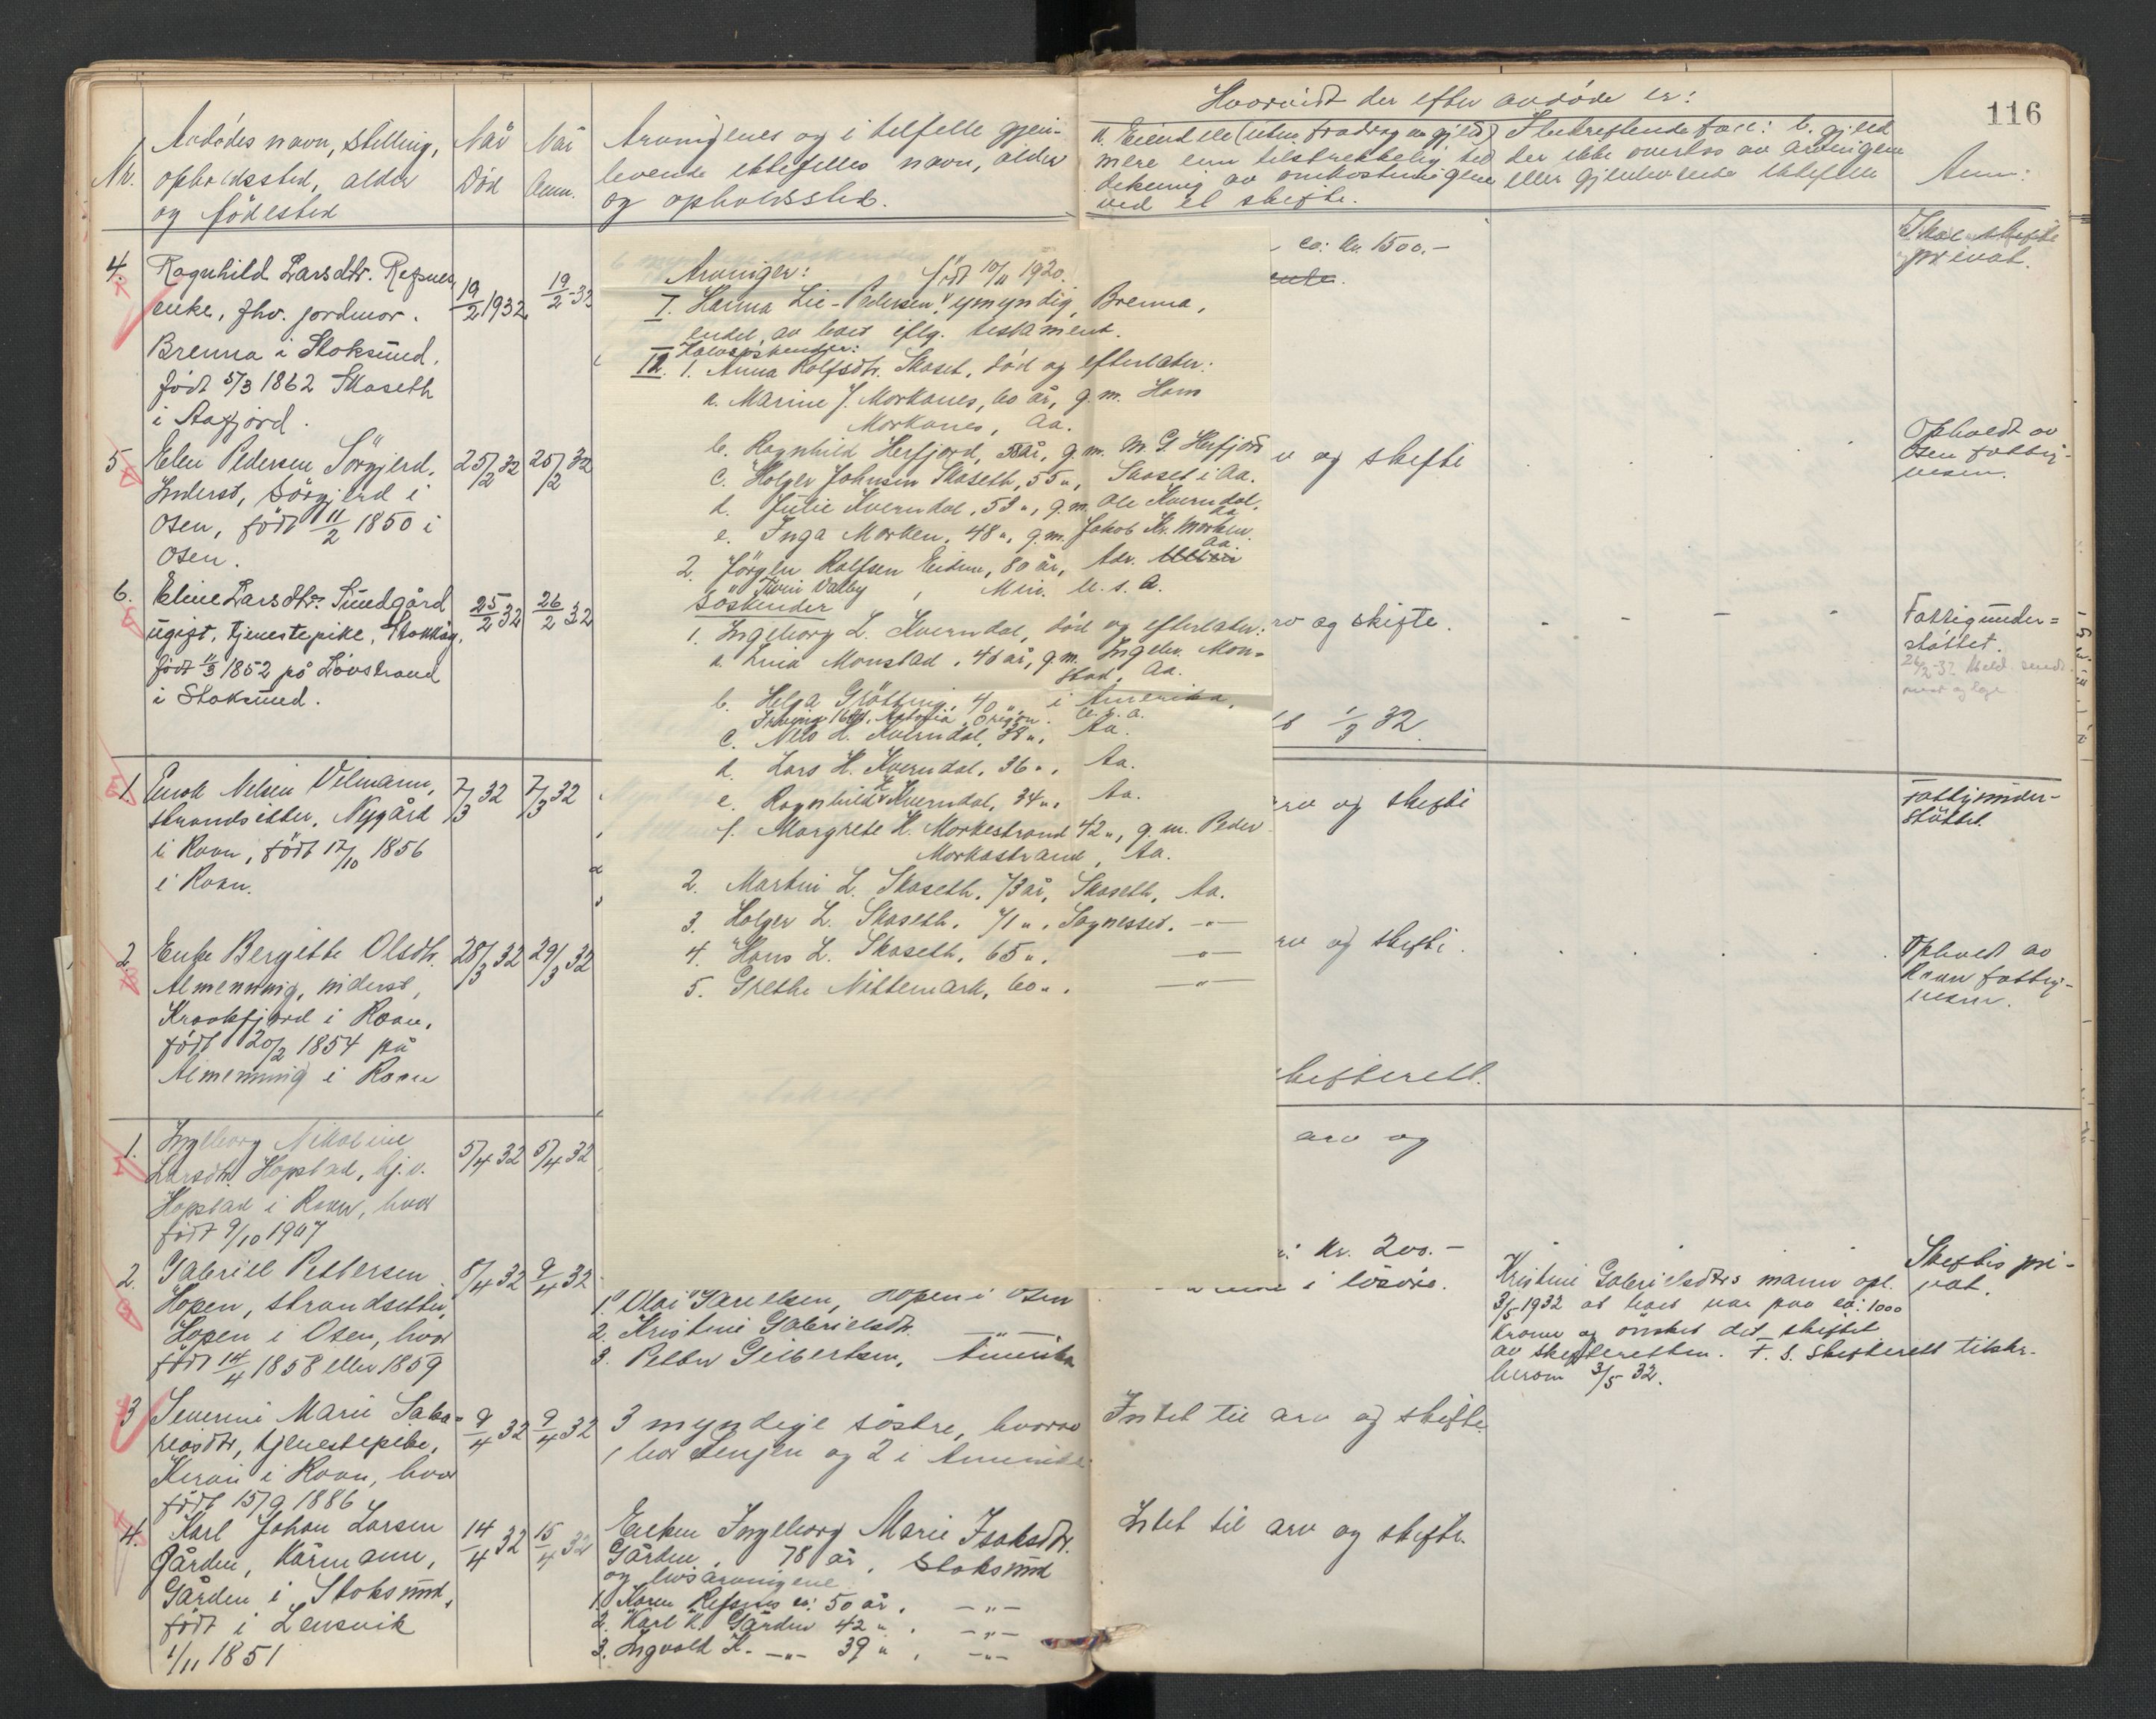 Nr.
Avdødes navn, stilling,
opholdssted, alder
og fødested
Når
Død
Når
Anm.
Arvingenes og i tilfelle gjen-
levende ektefelles navn, alder
og opholdssted.
Hvorvidt der efter avdøde er:
a. Eiendele (uten fradrag av gjeld)
mere enn tilstrekkelig til
dekning av omkostningene
ved et skifte.
I bekreftende fall: b. gjeld
der ikke overtas av arvingene
eller gjenlevende ektefelle
Anm:
116
4. Ragnhild Larsdtr. Refsnes,
enke, fhv. jordmor.
Brenna i Stoksund.
født 5/3 1862 Skaseth
i Aafjord.
19/2 1932
19/2-32
ca: kr. 1500.-
Skal skifte
privat.
Arvinger:
født 10/11 1920.
I. Hanna Lie-Pedersen, umyndig, Brenna,
endel av boet iflg. testament.
Halvsøskender:
II. 1. Anna Rolfsdtr. Skaset, død og efterlater:
a. Marine J. Morkanes, 60 år, g.m. Hans
Morkanes, Aa.
b. Ragnhild Herfjord, år, g.m. M. G. Herfjord
c. Holger Johnsen Skaseth, 55 ", Skaset i Aa.
d. Julie Kverndal, 53 ", g.m. Ole Kverndal,
Aa.
e. Inga Morken, 48 ", g.m. Jakob Kr. Morken.
Aa.
2. Jørgen Rolfsen Eidem, 80 år, Adr.
Twin Valley, Min. U.S.A.
Søskender
1. Ingeborg L. Kverndal, død og efterlater:
a. Lina Monstad, 46 år, g.m. Ingebr. Mon-
stad, Aa.
b. Helga Grøtting, 40 ", i Amerika,
Astoria, Oregon. U.S.A.
c. Nils H. Kverndal, 38 ", Aa.
d. Lars H. Kverndal, 36 ", Aa.
e. Ragnhild H. Kverndal, 34 ", Aa.
f. Margrete H. Morkestrand 42 ", g.m. Peder
Morkastrand, Aa.
2. Martin L. Skaseth, 73 år, Skaseth, Aa.
3. Holger L. Skaseth, 71 ", Sagnesset, -"-
4. Hans L. Skaseth, 65 ", -"-
5. Grethe Nittemark, 60 ", -"-
5. Elen Pedersen Sørgjerd,
Inderst, Sørgjerd i
Osen, født 11/2 1850 i
Osen.
25/2 32
25/2 32
og skifte
Opholdt av
Osen fattig-
vesen.
6. Eline Larsdtr. Sundgård
ugift, tjenestepike, Stokkøy,
født 11/3 1852 på Løvstrand
i Stoksund.
25/2 32
26/2 32
arv og skifte.
Fattigunder-
støttet.
1/3 32.
1. Enok Nelsen Vilmann,
strandsitter, Nygård
i Roan, født 17/10 1856
i Roan.
7/3 32
7/3 32
arv og skifte
Fattigunder-
støttet.
2. Enke Bergitte Olsdtr.
Almenning, inderst,
Kraakfjord i Roan,
født 20/2 1854 på
Almenning i Roan
28/3 32
29/3 32
arv og skifte.
Opholdt av
Roan fattig-
vesen.
skifterett.
1. Ingeborg Nikoline
Larsdtr. Hopstad, hj.v.
Hopstad i Roan, hvor
født 9/10 1907
5/4 32
5/4 32
arv og
2. Gabriel Pettersen
Hopen, strandsitter,
Hopen i Osen, hvor
født 14/4 1858 eller 1859
8/4 32
9/4 32
1. Olai Karelsen, Hopen i Osen
2. Kristine Gabrielsdtr. -"-
3. Petter Geibertsen, Amerika
kr. 200.-
i løsøre.
Kristine Gabrielsdtrs mann opl.
3/5-1932 at boet var paa ca: 1000
kroner og ønsket det skiftet
av skifteretten. F. S. skifterett tilskr.
herom 3/5 32.
Skiftes pri-
vat.
3 Severine Marie Saka-
riasdtr, tjenestepike,
Kiran i Roan, hvor
født 15/9 1886
9/4 32
9/4 32
3 myndige søstre, hvorav
1 bor Senjen og 2 i Amerika
Intet til arv og skifte.
4. Karl Johan Larsen
Gården, kårmann,
Gården i Stoksund,
født i Lensvik
1/11 1851
14/4 32
15/4 32
Enken Ingeborg Marie Isaksdtr.
Gården, 78 år, Stoksund
og livsarvingene
1. Karen Refsnes ca: 50 år, -"-
2. Karl K. Gården 42 ", -"-
3. Ingvald K. -"- 39 ", -"-
Intet til arv og skifte.